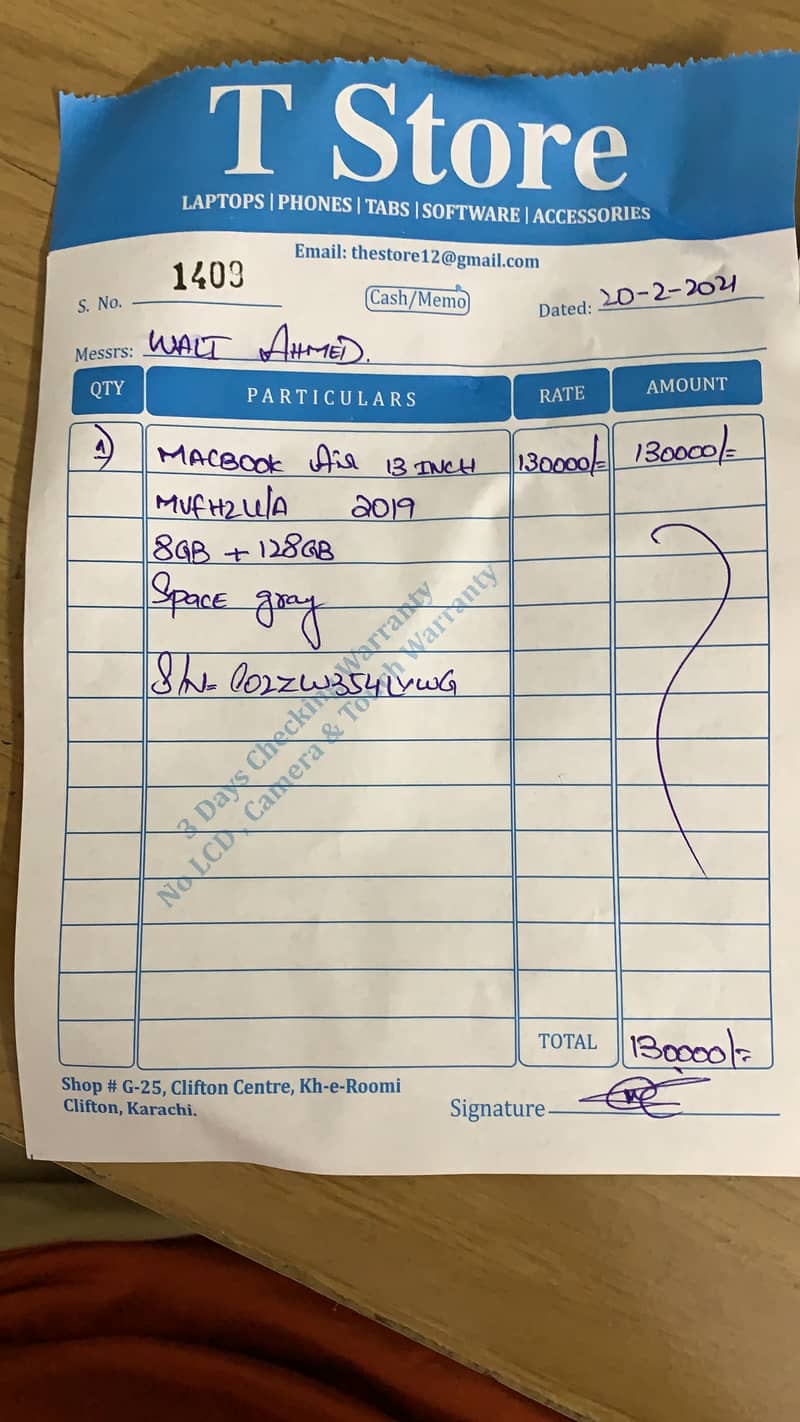 T Store
LAPTOPS | PHONES | TABS | SOFTWARE | ACCESSORIES
Email: thestore12@gmail.com
S. No. 1409
Cash/Memo
Dated: 20-2-2021
Messrs: WALI AHMED.
QTY PARTICULARS RATE AMOUNT
1) MACBOOK Air 13 INCH 130000/= 130000/=
MVFH2LL/A 2019
8GB + 128GB
SPACE gray
S/N= C02ZW354LYWG
3 Days Checking Warranty
No LCD, Camera & Touch Warranty
TOTAL 130000/=
Shop # G-25, Clifton Centre, Kh-e-Roomi
Clifton, Karachi.
Signature